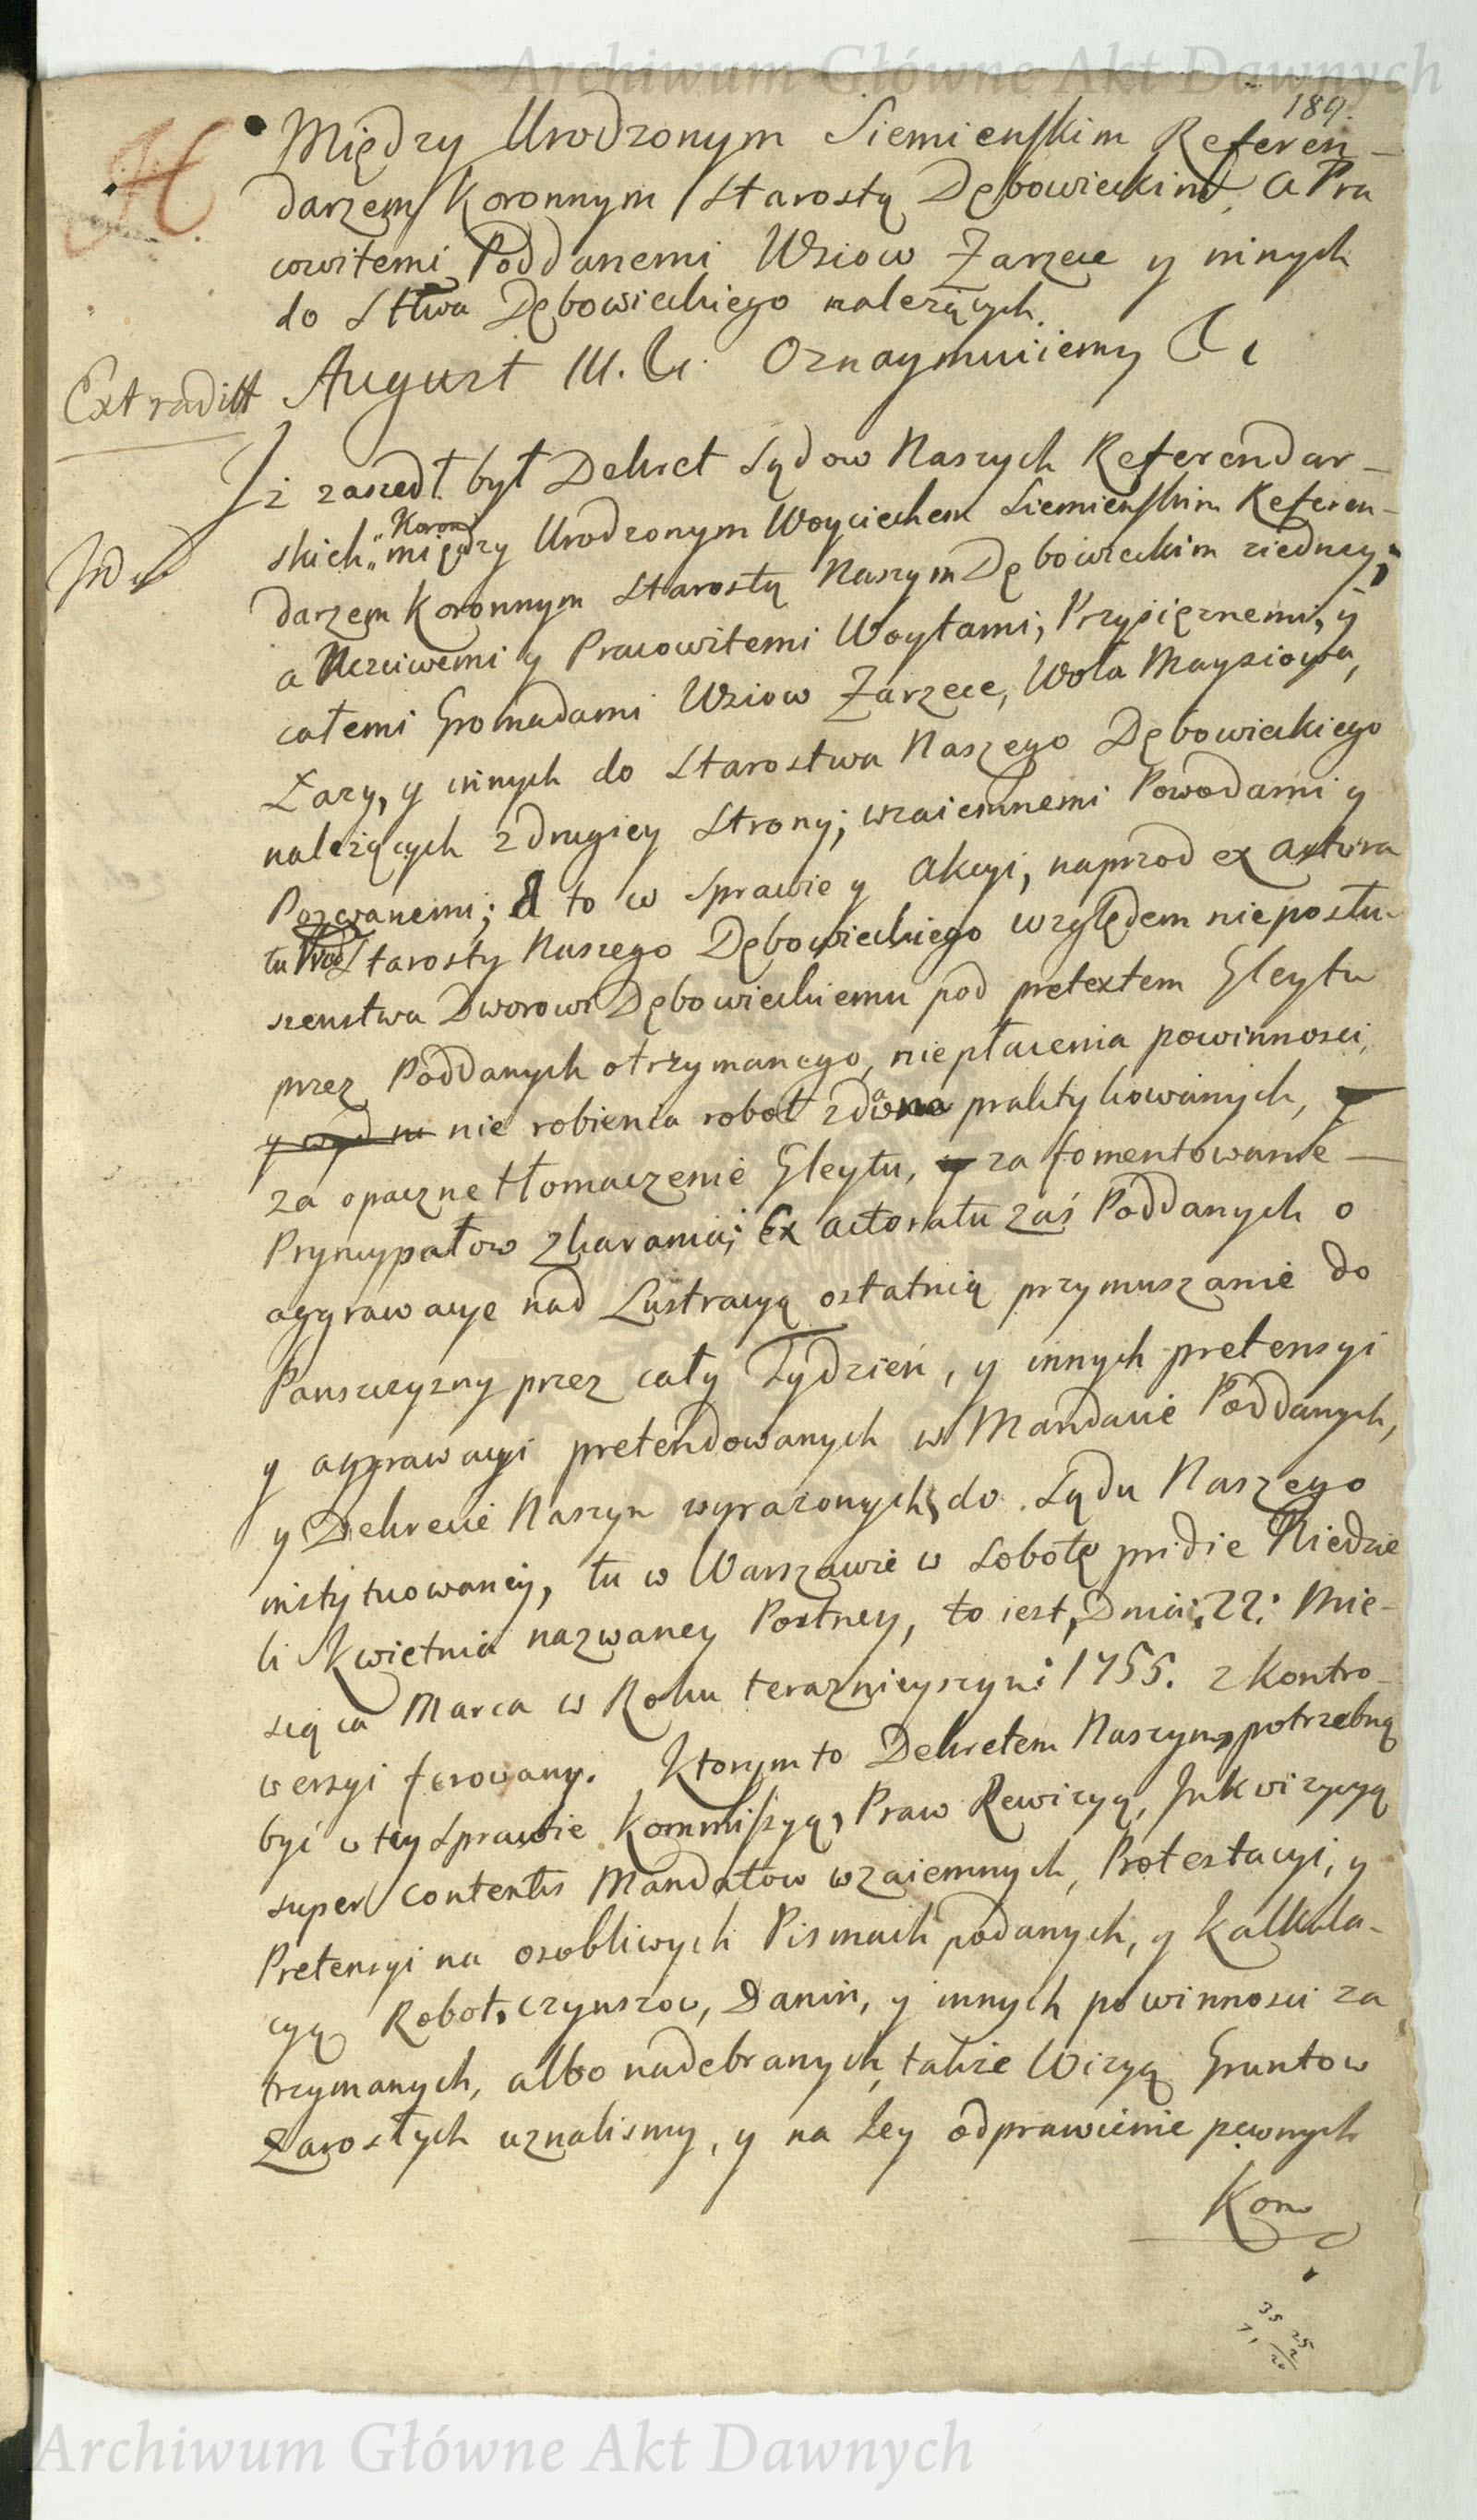 Archiwum Główne Akt Dawnych
189.
H
Między Urodzonym Siemienskim Referen-
darzem Koronnym Starostą Dębowieckim, a Pra
cowitemi Poddanemi Wsiow Zarzece y innych
do Sttwa Dębowieckiego należących.
Extraditt August III. &. Oznaymuiemy &c
Iż zaszedł był Dekret Sądow Naszych Referendar-
Koron
skich między Urodzonym Woyciechem Siemienskim Referen-
darzem Koronnym Starostą Naszym Dębowieckim ziedney,
a Uczciwemi y Pracowitemi Woytami, Przysięznemi, y
całemi Gromadami Wsiow Zarzece, Wola Maysiowa,
Łazy, y innych do Starostwa Naszego Dębowieckiego
należących z drugiey Strony; wzaiemnemi Powodami y
Pozwanemi; A to w Sprawie y Akcyi, naprzod ex actora
tu Starosty Naszego Dębowieckiego względem nieposłu-
szenstwa Dworowi Dębowieckiemu pod pretextem Gleytu
przez Poddanych otrzymanego, niepłacenia powinnosci,
nie robienia robot zdawna praktykowanych,
za opaczne tłomaczenie Gleytu, za fomentowanie
Pryncypałow zkarania; Ex actoratu zaś Poddanych o
aggrawacye nad Lustracyą ostatnią przymuszanie do
Panszczyzny przez cały Tydzień, y innych pretensyi
y aggrawacyi pretendowanych w Mandacie Poddanych,
y Dekrecie Naszym wyrażonych, do Sądu Naszego
instytuowaney, tu w Warszawie w Sobotę pridie Niedzie
li Kwietnia nazwaney Postney, to iest, Dnia 22: Mie-
siąca Marca w Roku teraznieyszym 1755. z kontro-
wersyi ferowany. Ktorym to Dekretem Naszym potrzebną
być w tey Sprawie Kommissyą, Praw Rewizyą, Inkwizycyą
super contentis Mandatow wzaiemnych, Protestacyi, y
Pretensyi na osobliwych Pismach podanych, y kalkula-
cyą Robot, czynszow, Danin, y innych powinnosci za
trzymanych, albo nadebranych, także Wizyą Gruntow
Zarosłych uznalismy, y na tey odprawienie pewnych
Kom
35 25
Archiwum Główne Akt Dawnych